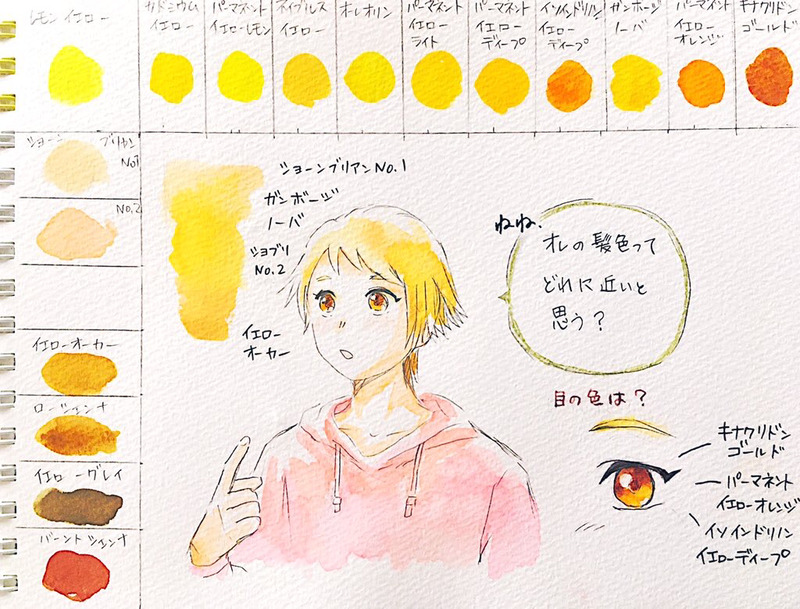 レモン イエロー
カドミウム
イエロー
パーマネント
イエローレモン
ネイプルス
イエロー
オーレオリン
パーマネント
イエロー
ライト
パーマネント
イエロー
ディープ
イソインドリノン
イエロー
ディープ
ガンボージ
ノーバ
パーマネント
イエロー
オレンジ
キナクリドン
ゴールド
ジョーン ブリヤン
No1
No.2
イエローオーカー
ローシェンナ
イエローグレイ
バーントシェンナ
ジョーンブリアンNo.1
ガンボージ
ノーバ
ジョブリ
No.2
イエロー
オーカー
ねね、
オレの髪色って
どれに近いと
思う？
目の色は？
キナクリドン
ゴールド
パーマネント
イエローオレンジ
イソインドリノン
イエローディープ